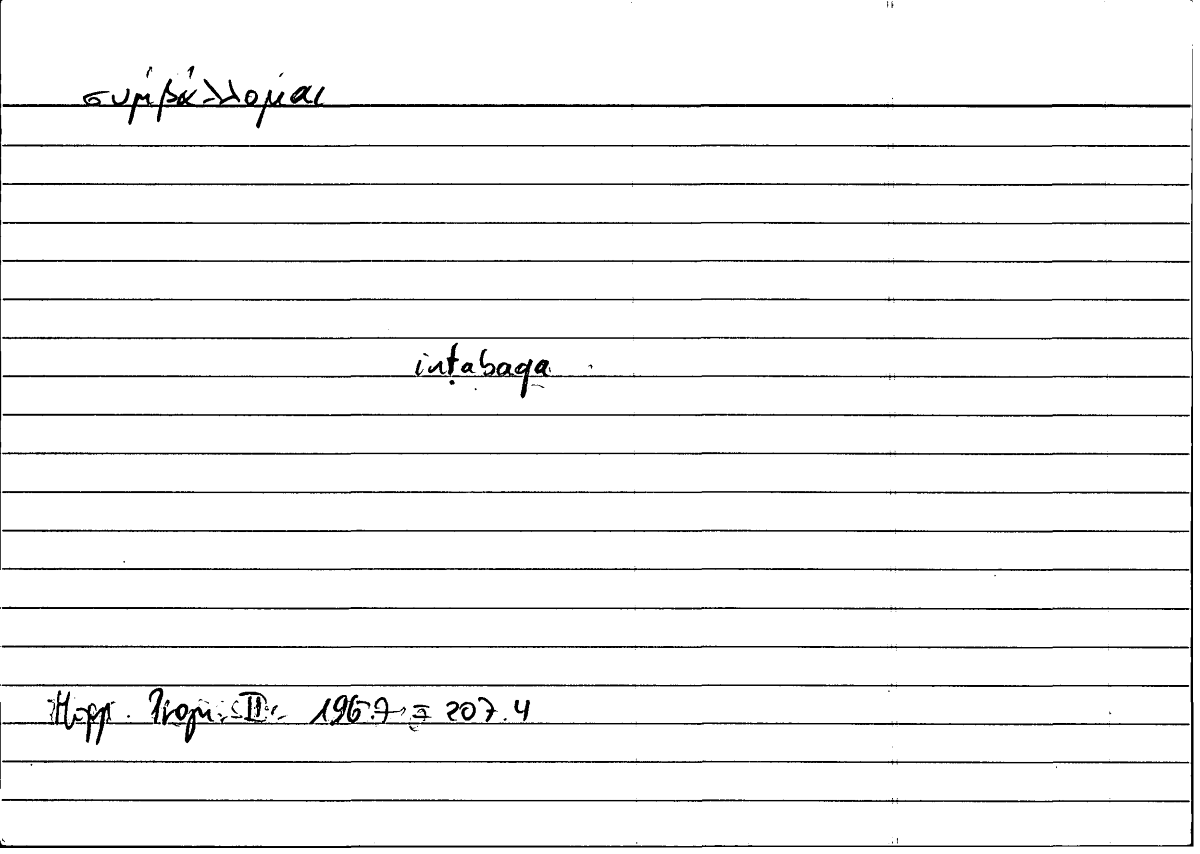 συμβάλλομαι
inṭabaqa
Hipp. Progn. II 196.7 = 207.4